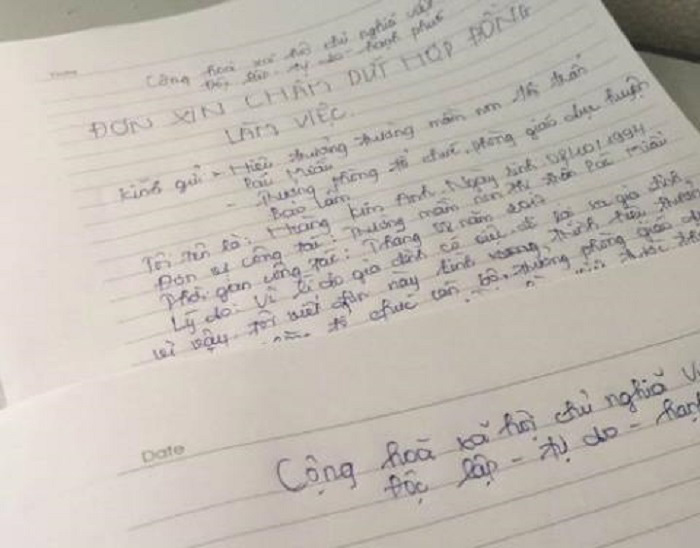 Cộng hoà xã hội chủ nghĩa việt
Độc lập - tự do - hạnh phúc
ĐƠN XIN CHẤM DỨT HỢP ĐỒNG
LÀM VIỆC.
Kính gửi - Hiệu trưởng trường mầm non thị trấn
Pác Miầu
- Trưởng phòng tổ chức, phòng giáo dục huyện
Bảo Lâm
Tôi tên là: Hoàng Kim Anh. Ngày sinh 08/10/1994
Đơn vị công tác: Trường mầm non thị trấn Pác Miầu
Thời gian công tác: Tháng năm
Lý do: Vì lí do gia đình có xa gia đình,
vì vậy tôi viết đơn này kính mong, trình hiệu trưởng
tổ chức cán bộ, trưởng phòng giáo
Date
Cộng hoà xã hội chủ nghĩa Vi
Độc lập - tự do - hạnh